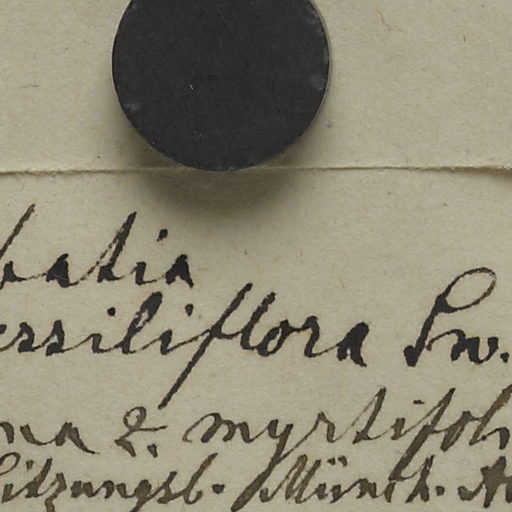 batia
essiliflora Sw.
na & myrtifoli
Sitzungsb. Münch. Ak